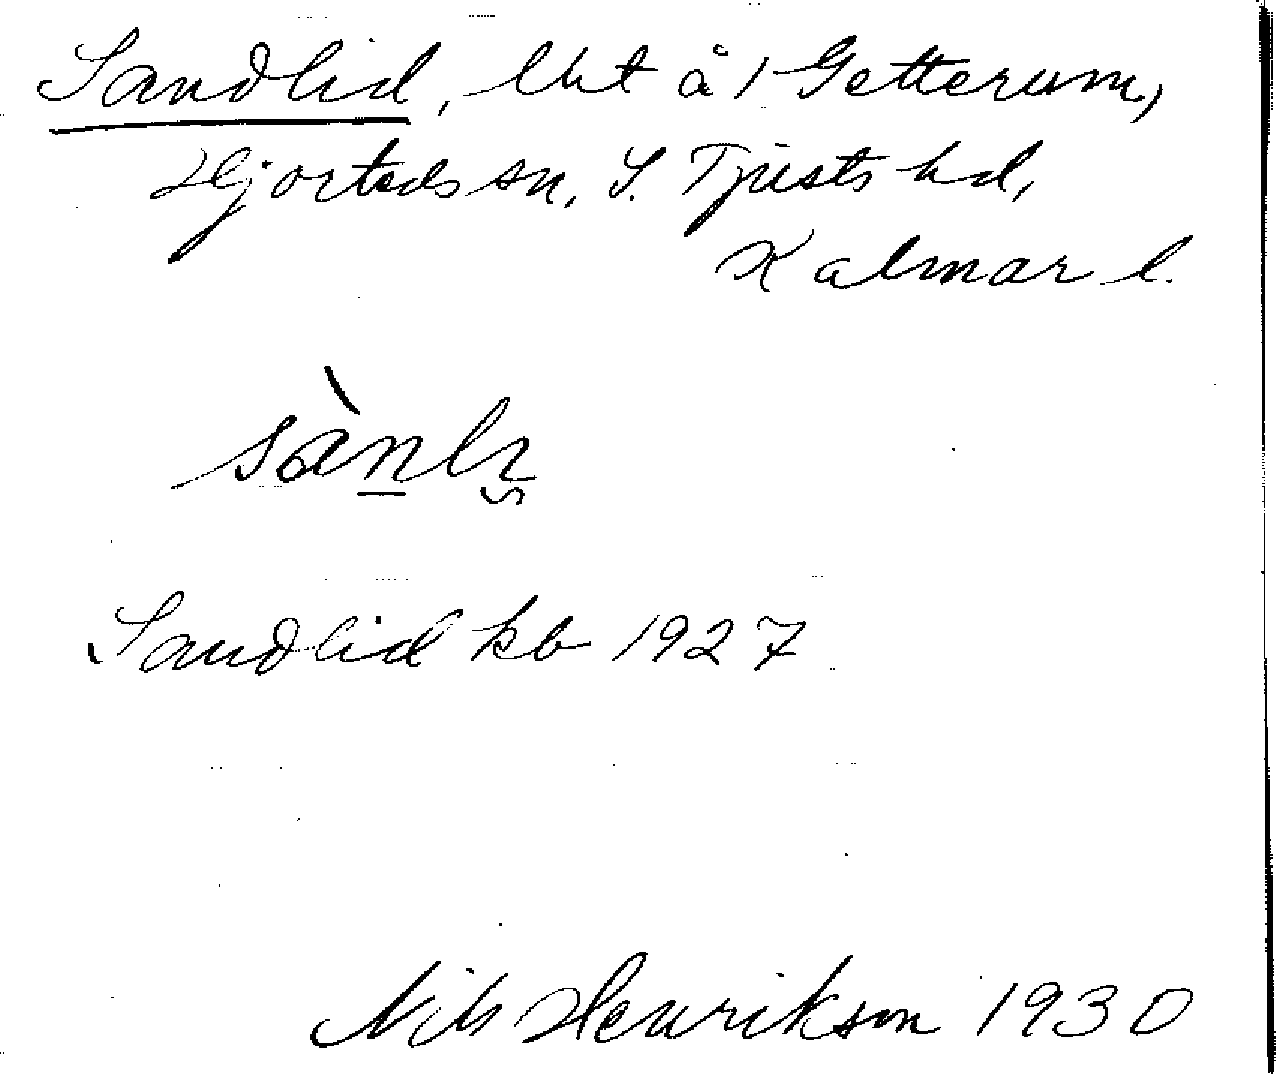 Sandlid, lht å 1 Getterum,
Hjorteds sn, S. Tjusts hd,
Kalmar l.
sànlı
Sandlid kb 1927
Nils Henrikson 1930